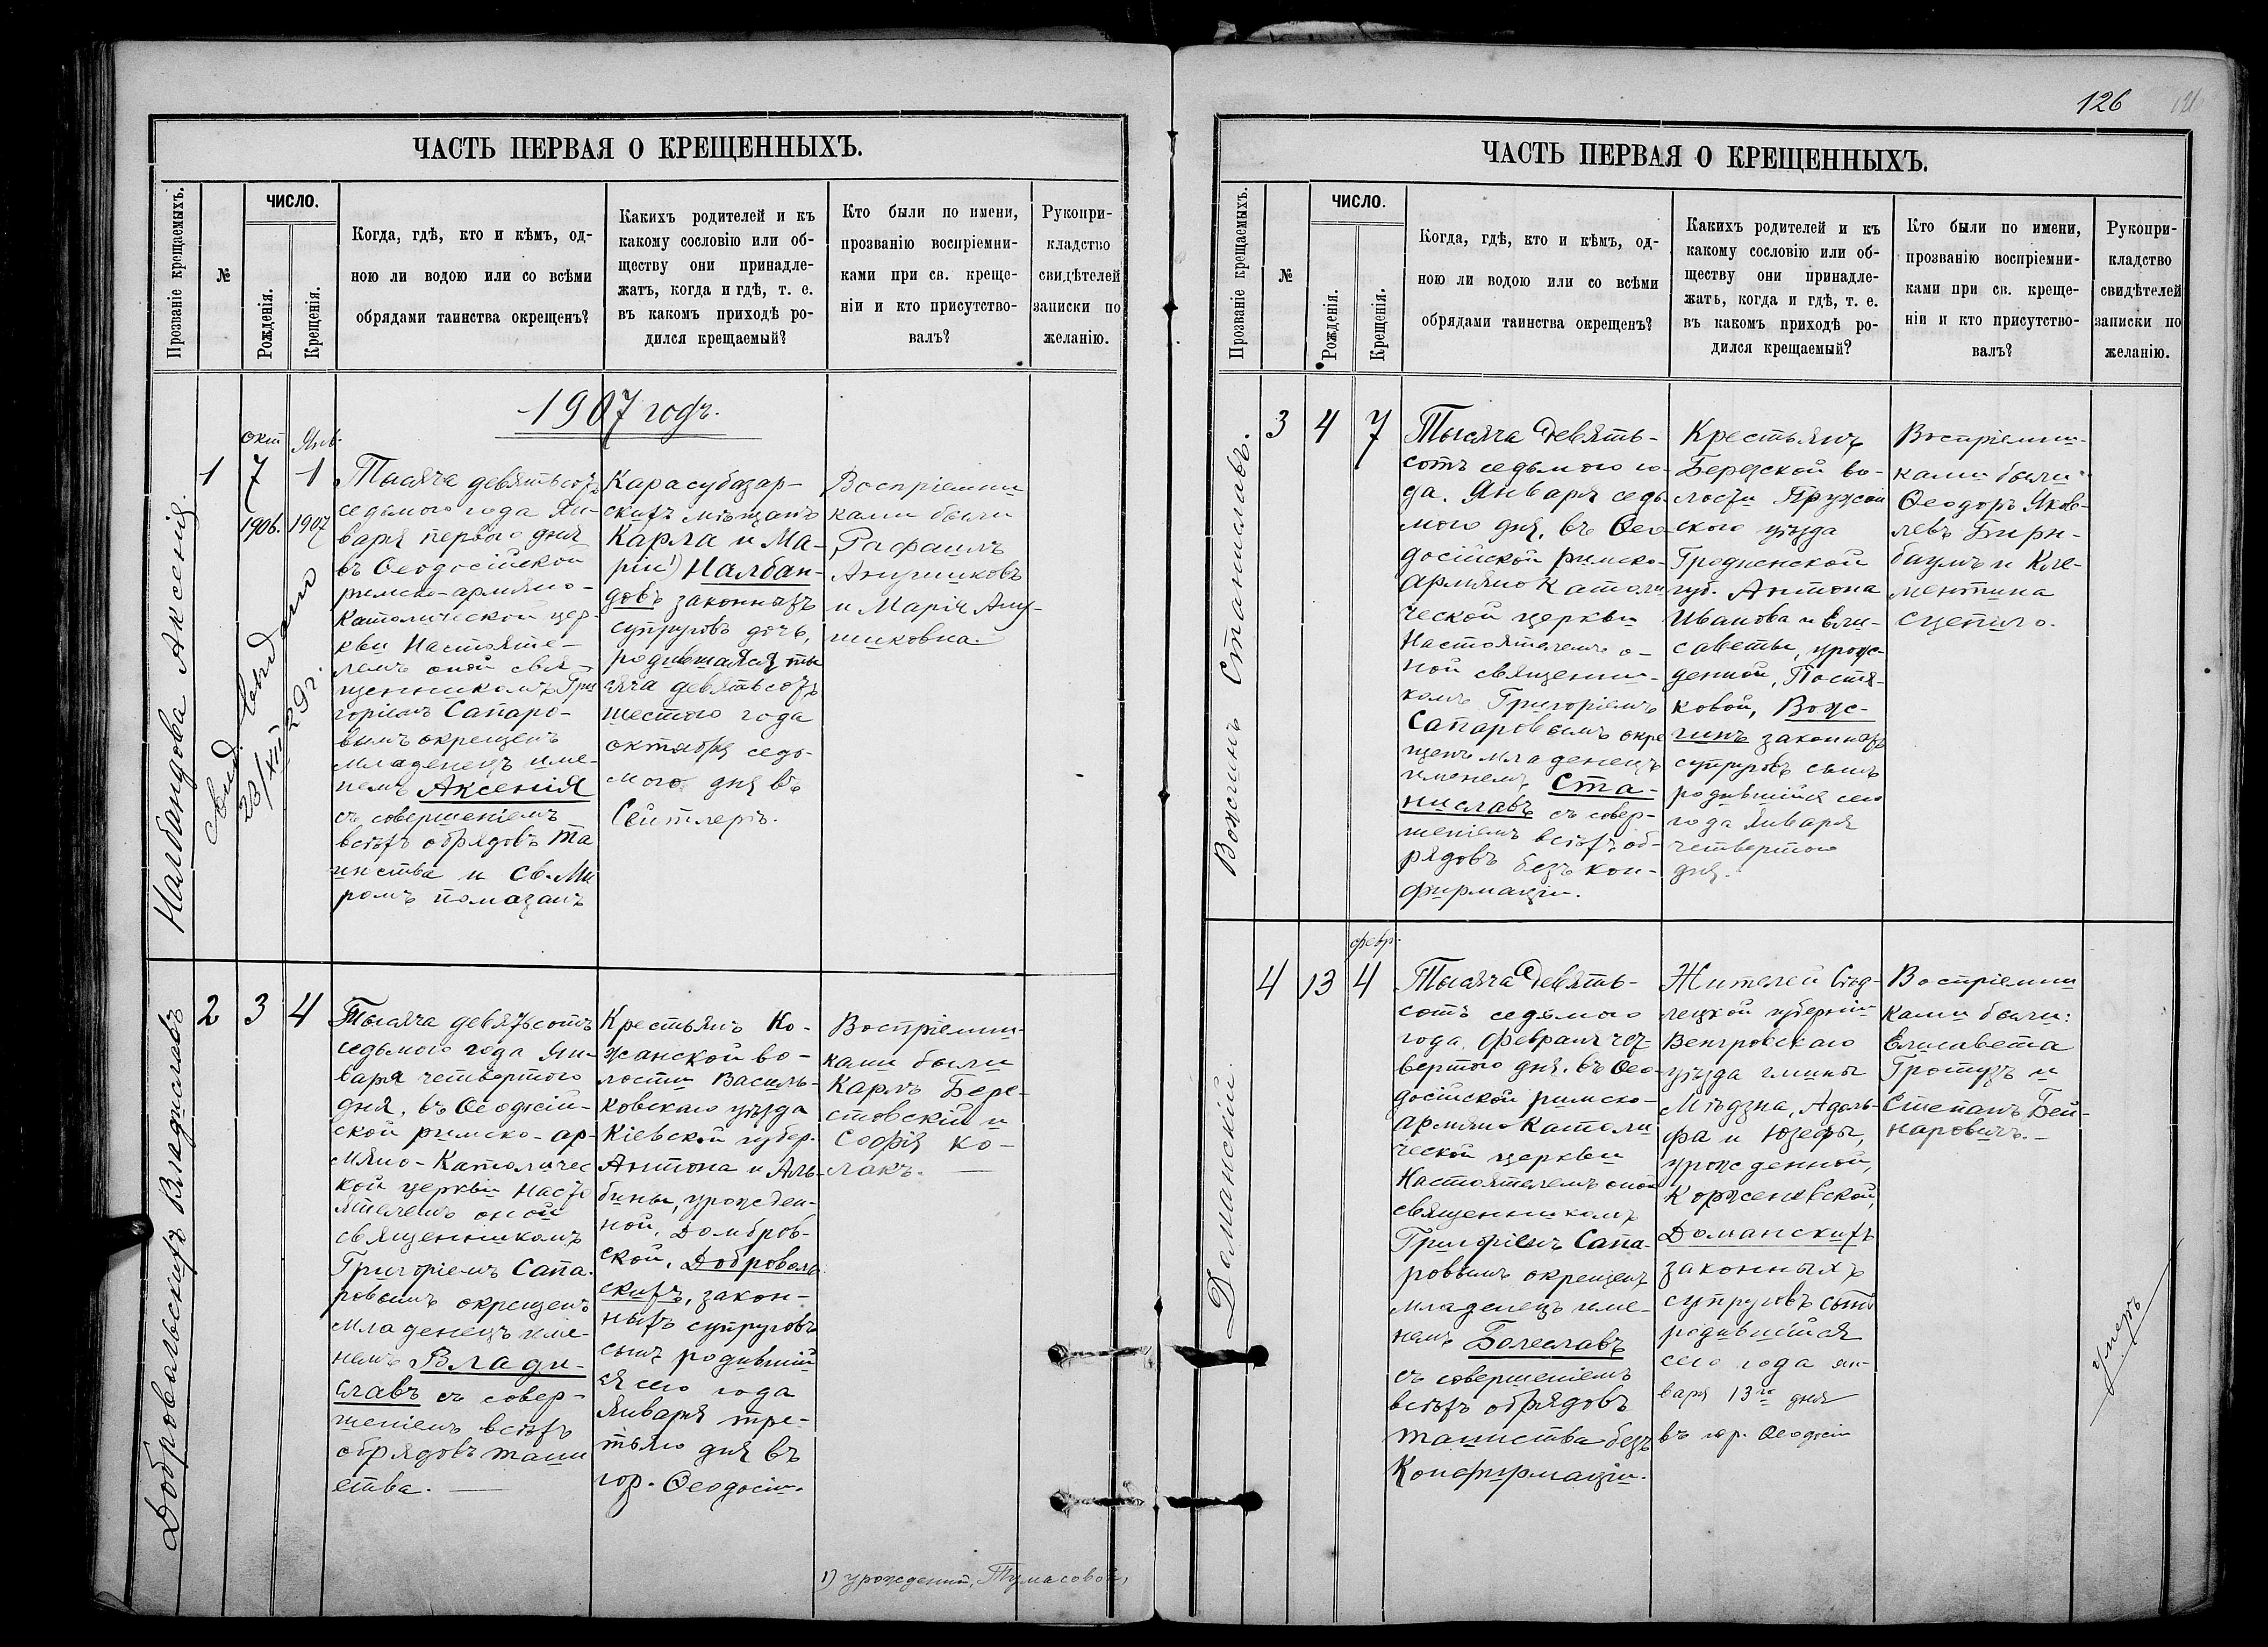 ЧАСТЬ ПЕРВАЯ О КРЕЩЕННЫХЪ.
Прозваніе крещаемыхъ.
№
ЧИСЛО.
Рожденія.
Крещенія.
Когда, гдѣ, кто и кѣмъ, од-
ною ли водою или со всѣми
обрядами таинства окрещенъ?
Какихъ родителей и къ
какому сословію или об-
ществу они принадле-
жатъ, когда и гдѣ, т. е.
въ какомъ приходѣ ро-
дился крещаемый?
Кто были по имени,
прозванію воспріемни-
ками при св. креще-
ніи и кто присутство-
валъ?
Рукопри-
кладство
свидѣтелей
записки по
желанію.
1907 годъ.
Налбандова Аксенія.
1
окт
7
1906.
Янв.
1
1907
23/XII 29 г.
Тысяча девятьсотъ
седьмого года Ян-
варя первого дня
въ Ѳеодосійской
римско-армяно-
Католической цер-
кви Настояте-
лемъ оной свя-
щенникомъ Гри
горіемъ Сапаро-
вымъ окрещенъ
младенецъ име-
немъ Аксенія
съ совершеніемъ
всѣхъ обрядовъ та
инства и св. Ми
ромъ помазанъ
Карасубазар-
скихъ мѣщанъ
Карла и Ма-
ріи 1) Налбан-
довъ законныхъ
супруговъ дочь,
родившаяся ты
сяча девятьсотъ
шестого года
октября седь-
мого дня въ
Сеитлеръ.
Воспріемни
ками были
Рафаилъ
Анушиковъ
и Марія Ану-
шиковна.
Добровольскихъ Владиславъ
2
3
4
Тысяча девятьсотъ
седьмого года Ян-
варя четвертого
дня, въ Ѳеодосій-
ской римско-ар-
мяно-Католичес
кой церкви Насто
ятелемъ оной
священникомъ
Григоріемъ Сапа-
ровымъ окрещенъ
младенецъ име-
немъ Влади-
славъ съ совер-
шеніемъ всѣхъ
обрядовъ таин
ства. —
Крестьянъ Ко-
жанской во-
лости Василь-
ковскаго уѣзда
Кіевской губер.
Антона и Аль-
бины, урожден-
ной, Домбров-
ской, Доброволь
скихъ, закон-
ныхъ супруговъ
сынъ родившій
ся сего года
Января тре-
тьяго дня въ
гор. Ѳеодосіи.
Воспріемни-
ками были
Карлъ Бере-
стовскій и
Софія Ко-
лакъ. —
1) урожденной, Тумасовой,
126
126
ЧАСТЬ ПЕРВАЯ О КРЕЩЕННЫХЪ.
Прозваніе крещаемыхъ.
№
ЧИСЛО.
Рожденія.
Крещенія.
Когда, гдѣ, кто и кѣмъ, од-
ною ли водою или со всѣми
обрядами таинства окрещенъ?
Какихъ родителей и къ
какому сословію или об-
ществу они принадле-
жатъ, когда и гдѣ, т. е.
въ какомъ приходѣ ро-
дился крещаемый?
Кто были по имени,
прозванію воспріемни-
ками при св. креще-
ніи и кто присутство-
валъ?
Рукопри-
кладство
свидѣтелей
записки по
желанію.
Вожгинъ Станиславъ.
3
4
7
Тысяча девять-
сотъ седьмого го-
да. Января седь
мого дня, въ Ѳео-
досійской римско-
армяно Католи
ческой церкви
Настоятелемъ о-
ной священни-
комъ Григоріемъ
Сапаровымъ окре
щенъ младенецъ
именемъ, Ста-
ниславъ съ совер-
шеніемъ всѣхъ об-
рядовъ безъ кон-
фирмаціи.
Крестьянъ
Березской во-
лости Пружан
ского уѣзда
Гродненской
губ. Антона
Иванова и Ели-
саветы, урож-
денной, Постя-
ковой, Вож-
гинъ законныхъ
супруговъ сынъ
родившійся сего
года Января
четвертого
дня.
Воспріемни-
ками были:
Ѳеодоръ Яков-
левъ Бирн-
баумъ и Кле-
ментина
Сцепиго.
Доманскій.
4
13
февр.
4
Тысяча девять-
сотъ седьмого
года, февраля чет-
вертого дня, въ Ѳео-
досійской римско-
армяно Католи
ческой церкви
Настоятелемъ оной
священникомъ
Григоріемъ Сапа-
ровымъ окрещенъ
младенецъ име-
немъ Болеславъ
съ совершеніемъ
всѣхъ обрядовъ
таинства безъ
Конфирмаціи.
Жителей Сѣд-
лецкой губерніи
Венгровскаго
уѣзда гмины
Мѣдзна, Адоль-
фа и Юзефы,
урожденной,
Корженевской,
Доманскихъ
законныхъ
супруговъ сынъ
родившійся
сего года ян-
варя 13го дня
въ гор. Ѳеодосіи
Воспріемни
ками были:
Елисавета
Гротузъ и
Степанъ Бей-
наровичъ. —
умеръ